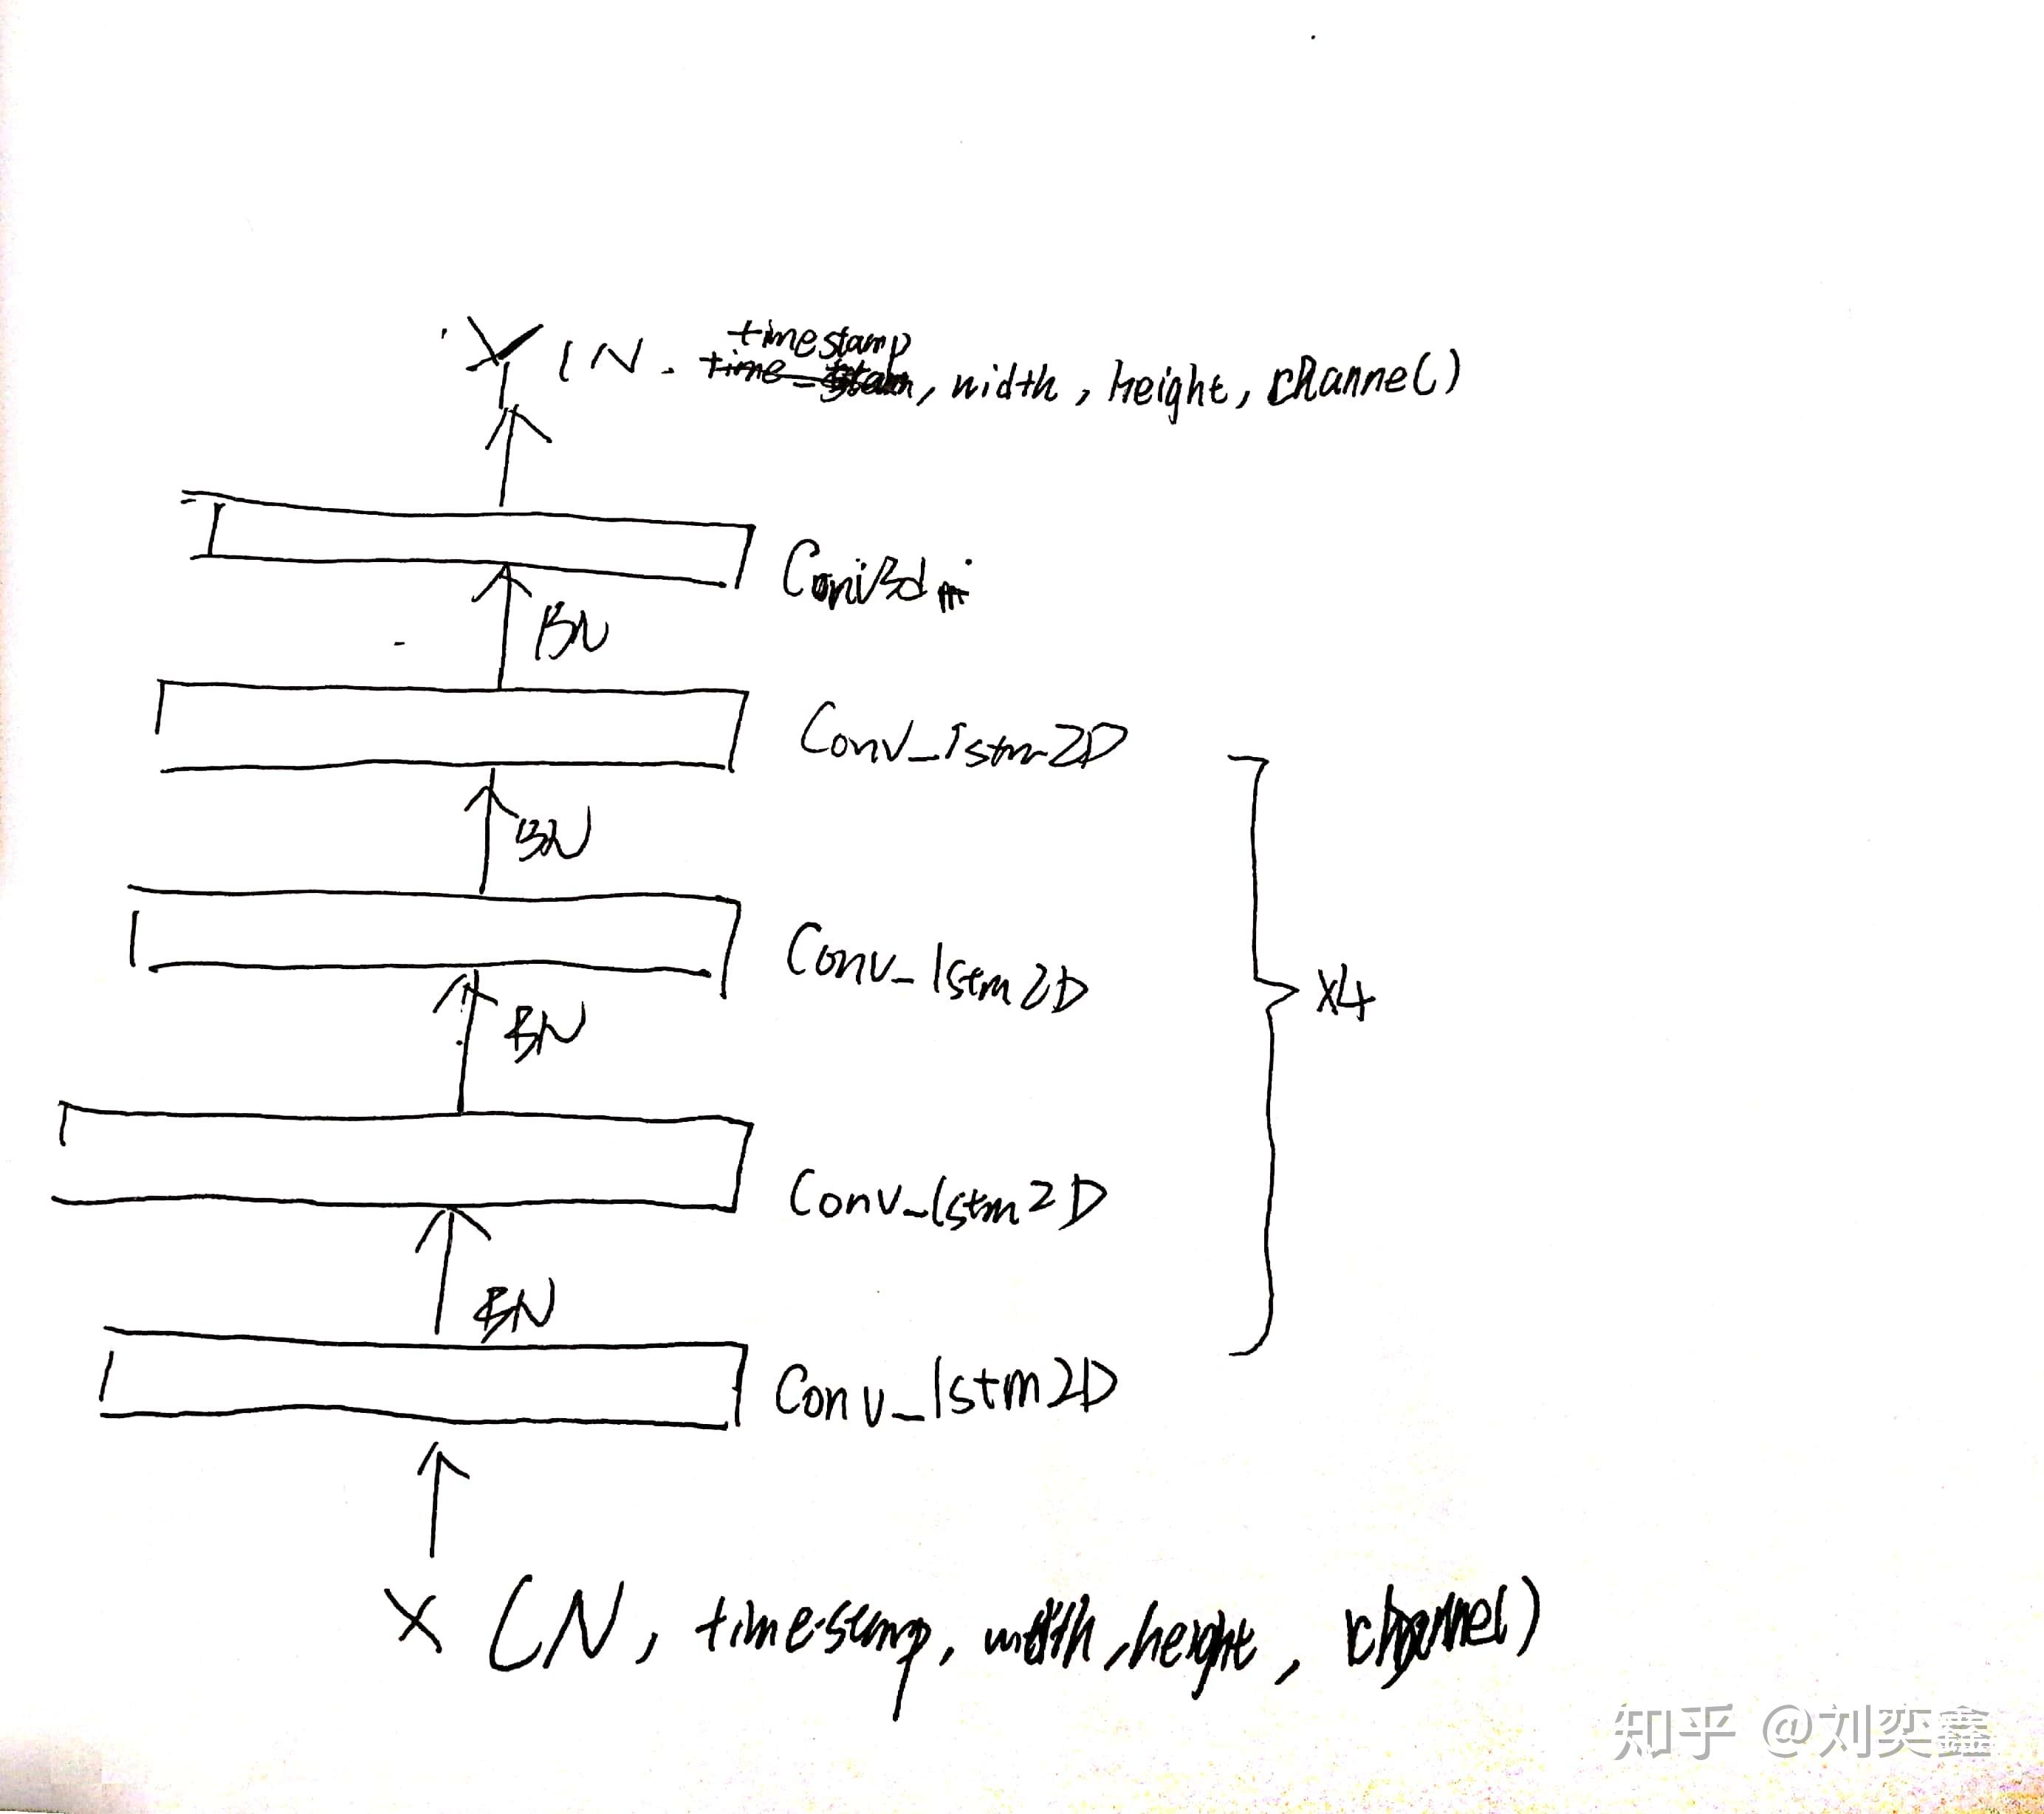 timestamp
Y (N, time_stam, width, height, channel)
Conv3d
BN
Conv_lstm2D
BN
Conv_lstm2D
BN
Conv_lstm2D
x4
BN
Conv_lstm2D
X (N, timestamp, width, height, channel)
知乎 @刘奕鑫